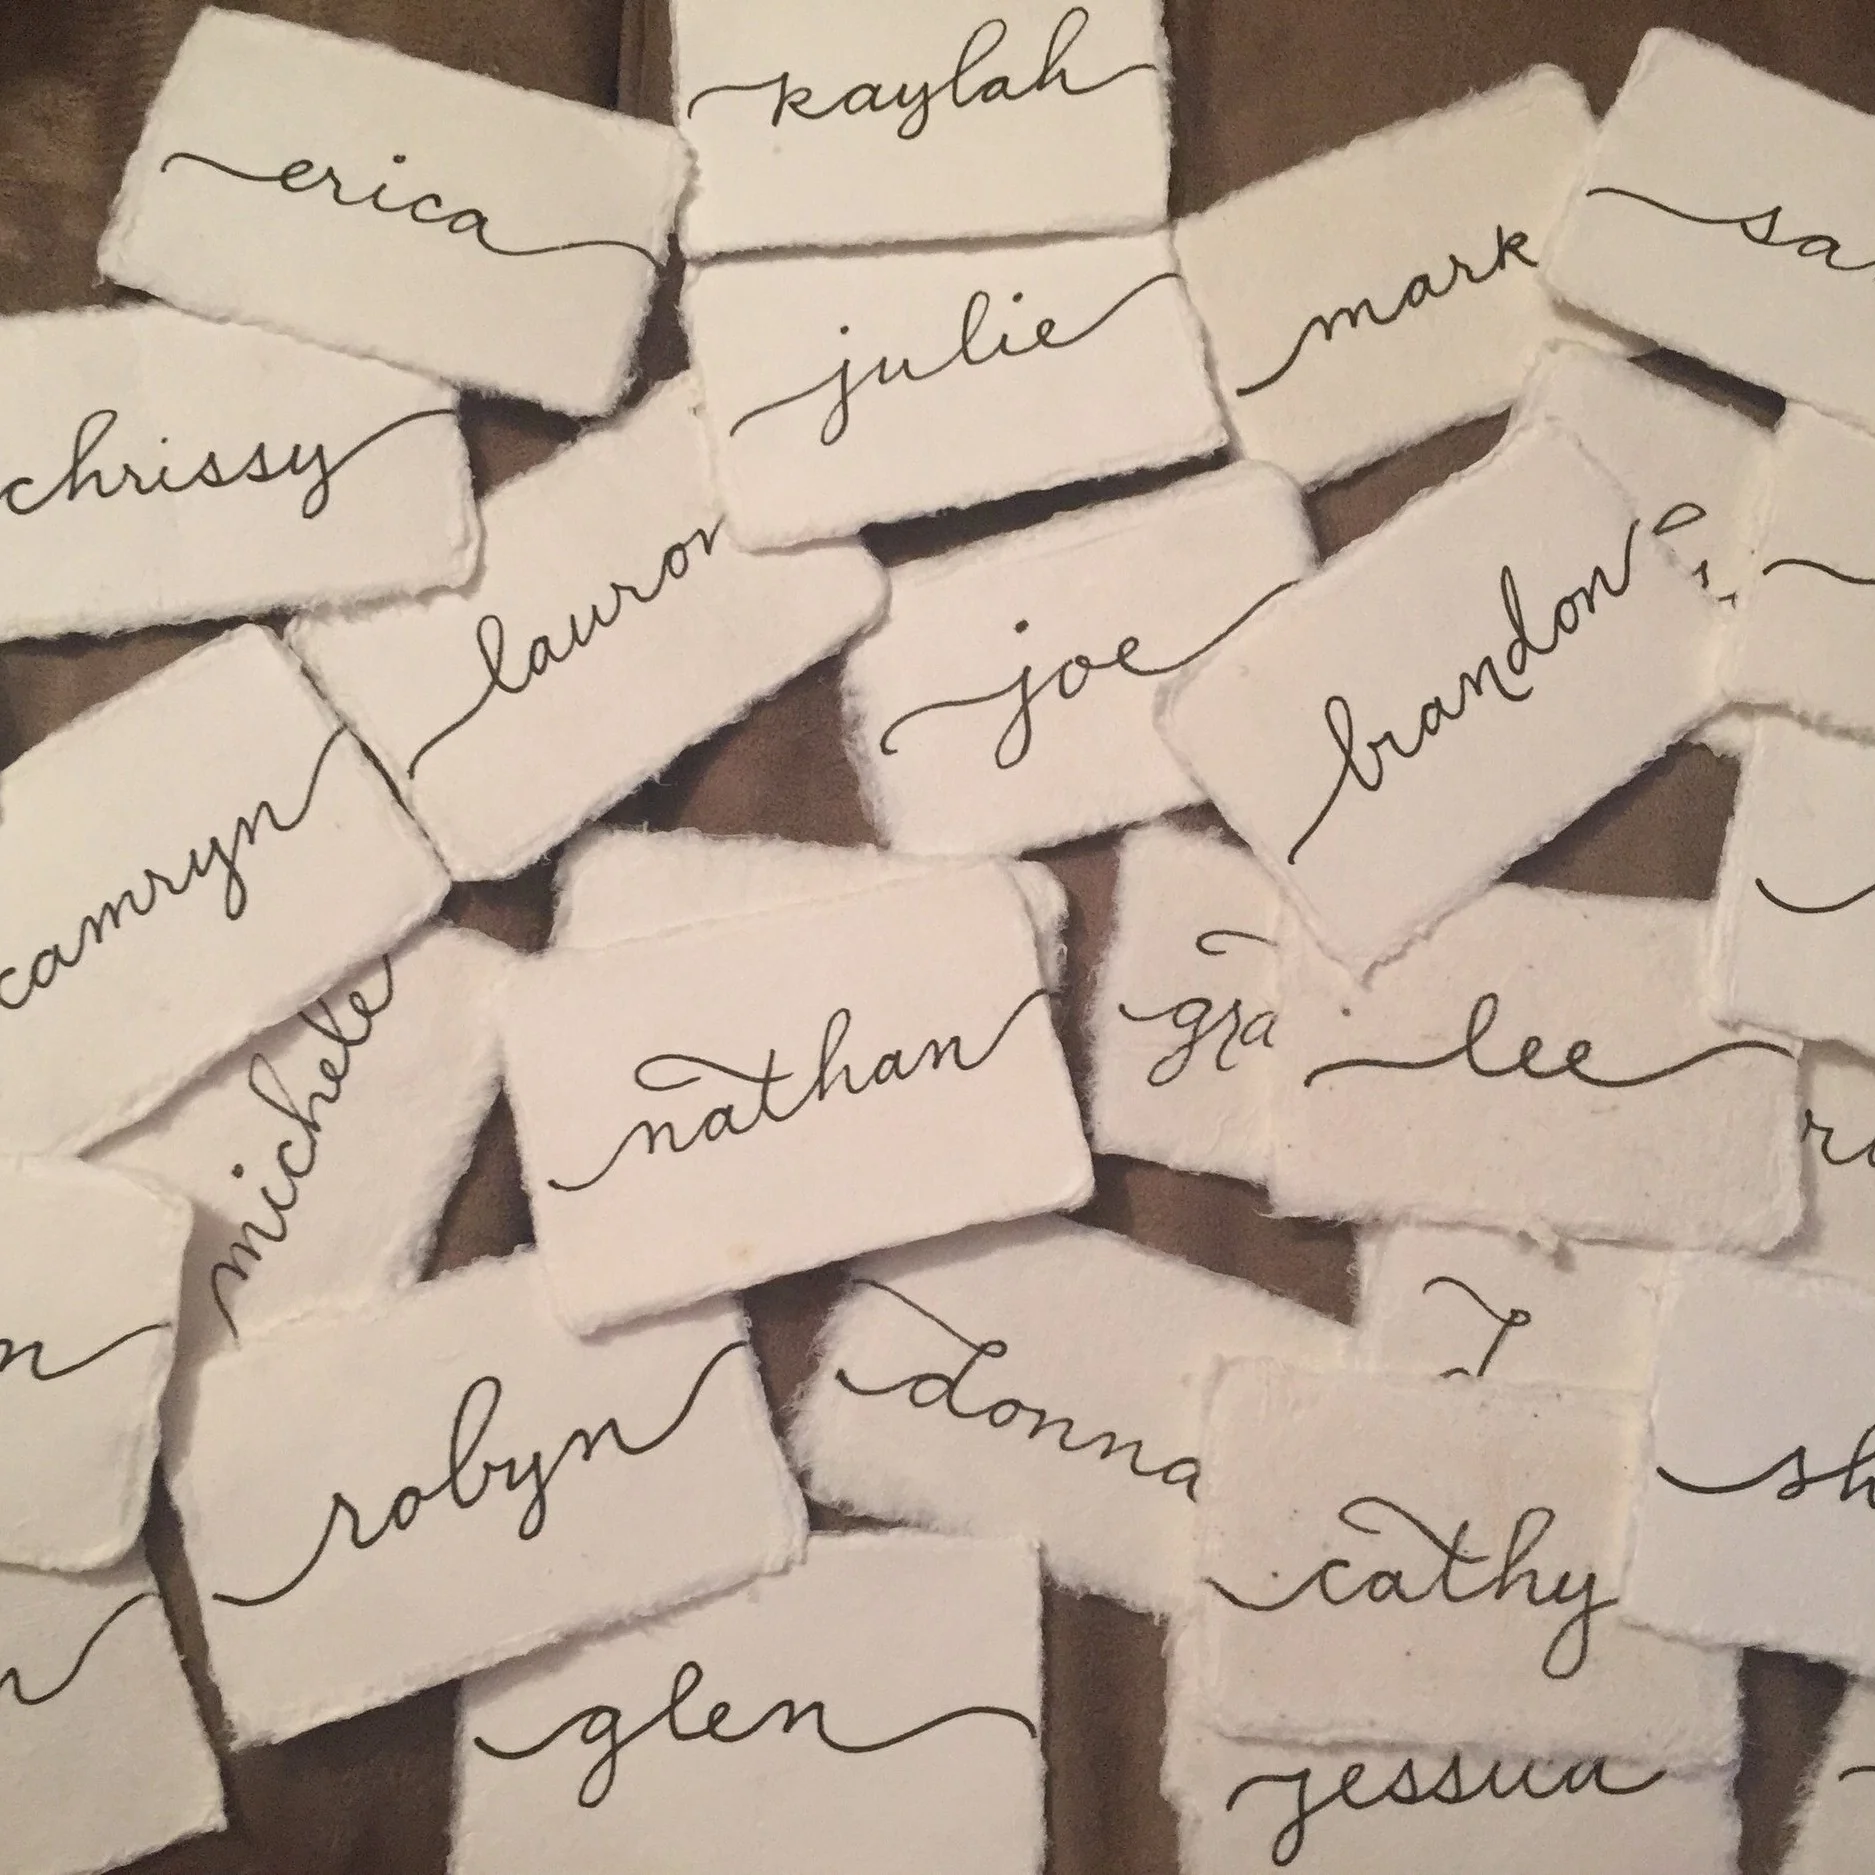 kaylah
erica
sa
mark
julie
chrissy
lauron
joe
brandon
camryn
michele
gra
lee
nathan
donna
robyn
sh
cathy
glen
jessica